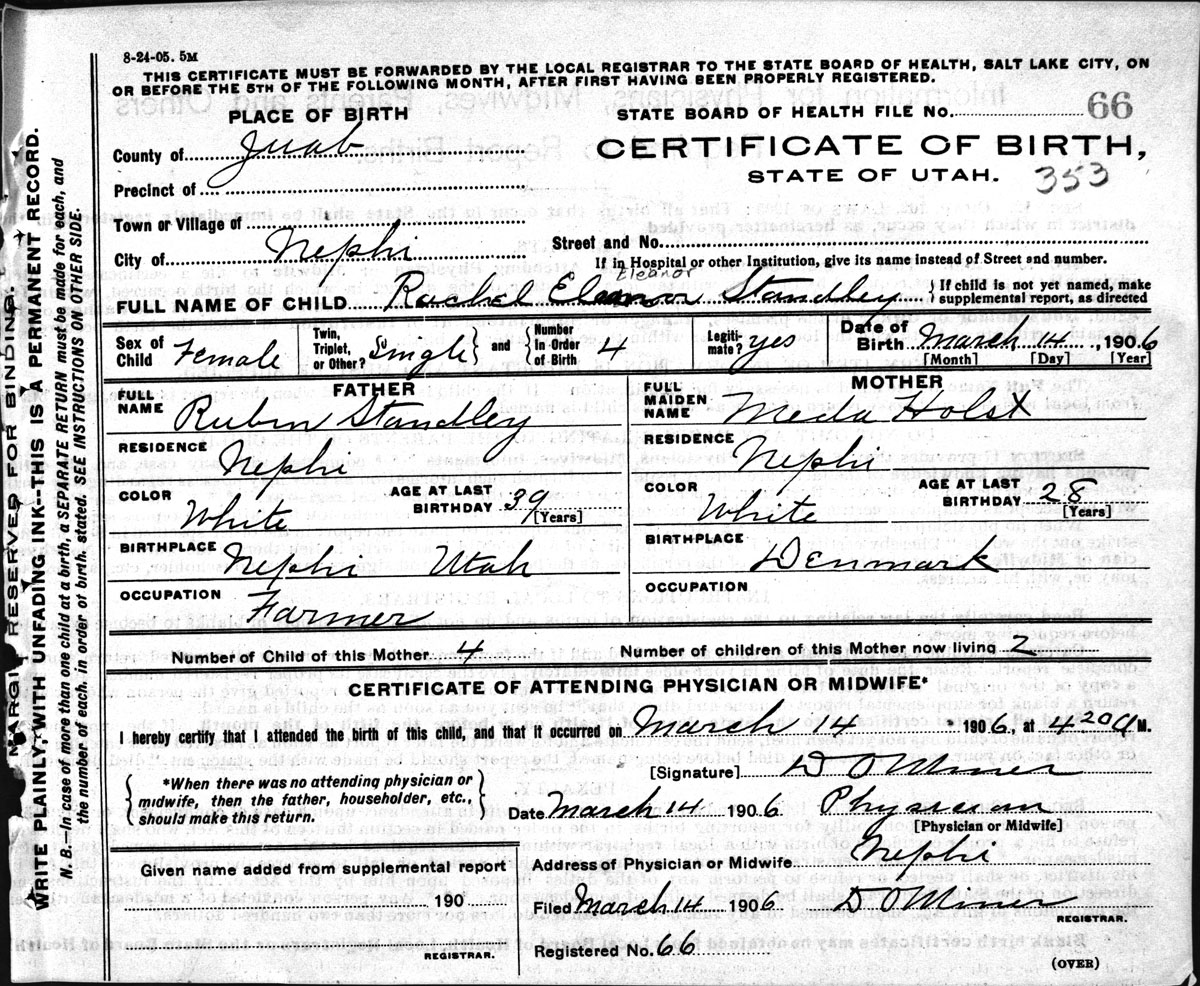 8-24-05. 5M
THIS CERTIFICATE MUST BE FORWARDED BY THE LOCAL REGISTRAR TO THE STATE BOARD OF HEALTH, SALT LAKE CITY, ON
OR BEFORE THE 5TH OF THE FOLLOWING MONTH, AFTER FIRST HAVING BEEN PROPERLY REGISTERED.
PLACE OF BIRTH
STATE BOARD OF HEALTH FILE NO. 66
County of Juab
CERTIFICATE OF BIRTH,
STATE OF UTAH. 353
Precinct of
Town or Village of
City of Nephi
Street and No.
If in Hospital or other Institution, give its name instead of Street and number.
Eleanor
FULL NAME OF CHILD Rachel Standley { If child is not yet named, make
supplemental report, as directed
Sex of Child Female
Twin, Triplet, or Other? Single } and { Number In Order of Birth 4
Legitimate? yes
Date of Birth March 14, 1906
[Month] [Day] [Year]
FATHER
FULL NAME Rubin Standley
RESIDENCE Nephi
COLOR White
AGE AT LAST BIRTHDAY 39
[Years]
BIRTHPLACE Nephi Utah
OCCUPATION Farmer
MOTHER
FULL MAIDEN NAME Meda Holst
RESIDENCE Nephi
COLOR White
AGE AT LAST BIRTHDAY 28
[Years]
BIRTHPLACE Denmark
OCCUPATION
Number of Child of this Mother 4 Number of children of this Mother now living 2
CERTIFICATE OF ATTENDING PHYSICIAN OR MIDWIFE*
I hereby certify that I attended the birth of this child, and that it occurred on March 14 1906, at 4 20 a M.
{ *When there was no attending physician or
midwife, then the father, householder, etc.,
should make this return. }
[Signature] D O Miner
Date March 14 1906. Physician
[Physician or Midwife]
Given name added from supplemental report
190
REGISTRAR.
Address of Physician or Midwife Nephi
Filed March 14 1906 D O Miner
REGISTRAR.
Registered No. 66
(OVER)
MARGIN RESERVED FOR BINDING.
WRITE PLAINLY, WITH UNFADING INK--THIS IS A PERMANENT RECORD.
N. B.--In case of more than one child at a birth, a SEPARATE RETURN must be made for each, and
the number of each, in order of birth, stated. SEE INSTRUCTIONS ON OTHER SIDE.